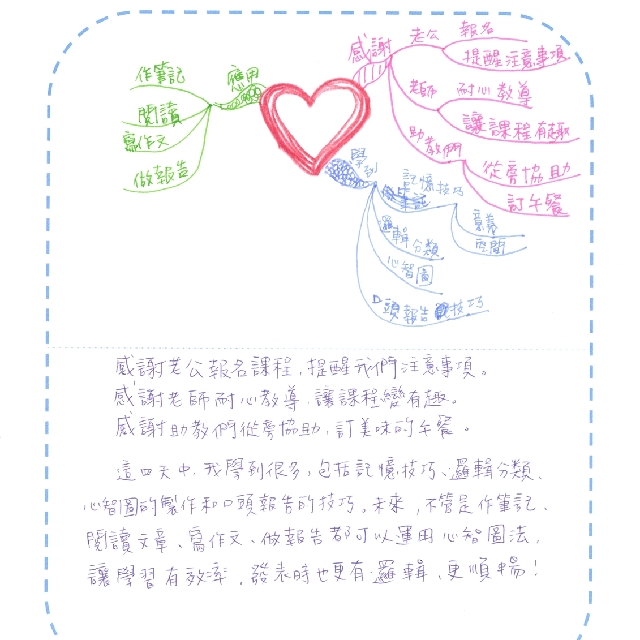 感謝
老公
報名
提醒注意事項
老師
耐心教導
讓課程有趣
助教們
從旁協助
訂午餐
應用
作筆記
閱讀
寫作文
做報告
學到
記憶技巧
意義
空間
邏輯分類
心智圖
口頭報告技巧
感謝老公報名課程，提醒我們注意事項。
感謝老師耐心教導，讓課程變有趣。
感謝助教們從旁協助，訂美味的午餐。
這四天中，我學到很多，包括記憶技巧、邏輯分類、
心智圖的製作和口頭報告的技巧，未來，不管是作筆記、
閱讀文章、寫作文、做報告都可以運用心智圖法，
讓學習有效率，發表時也更有邏輯、更順暢！